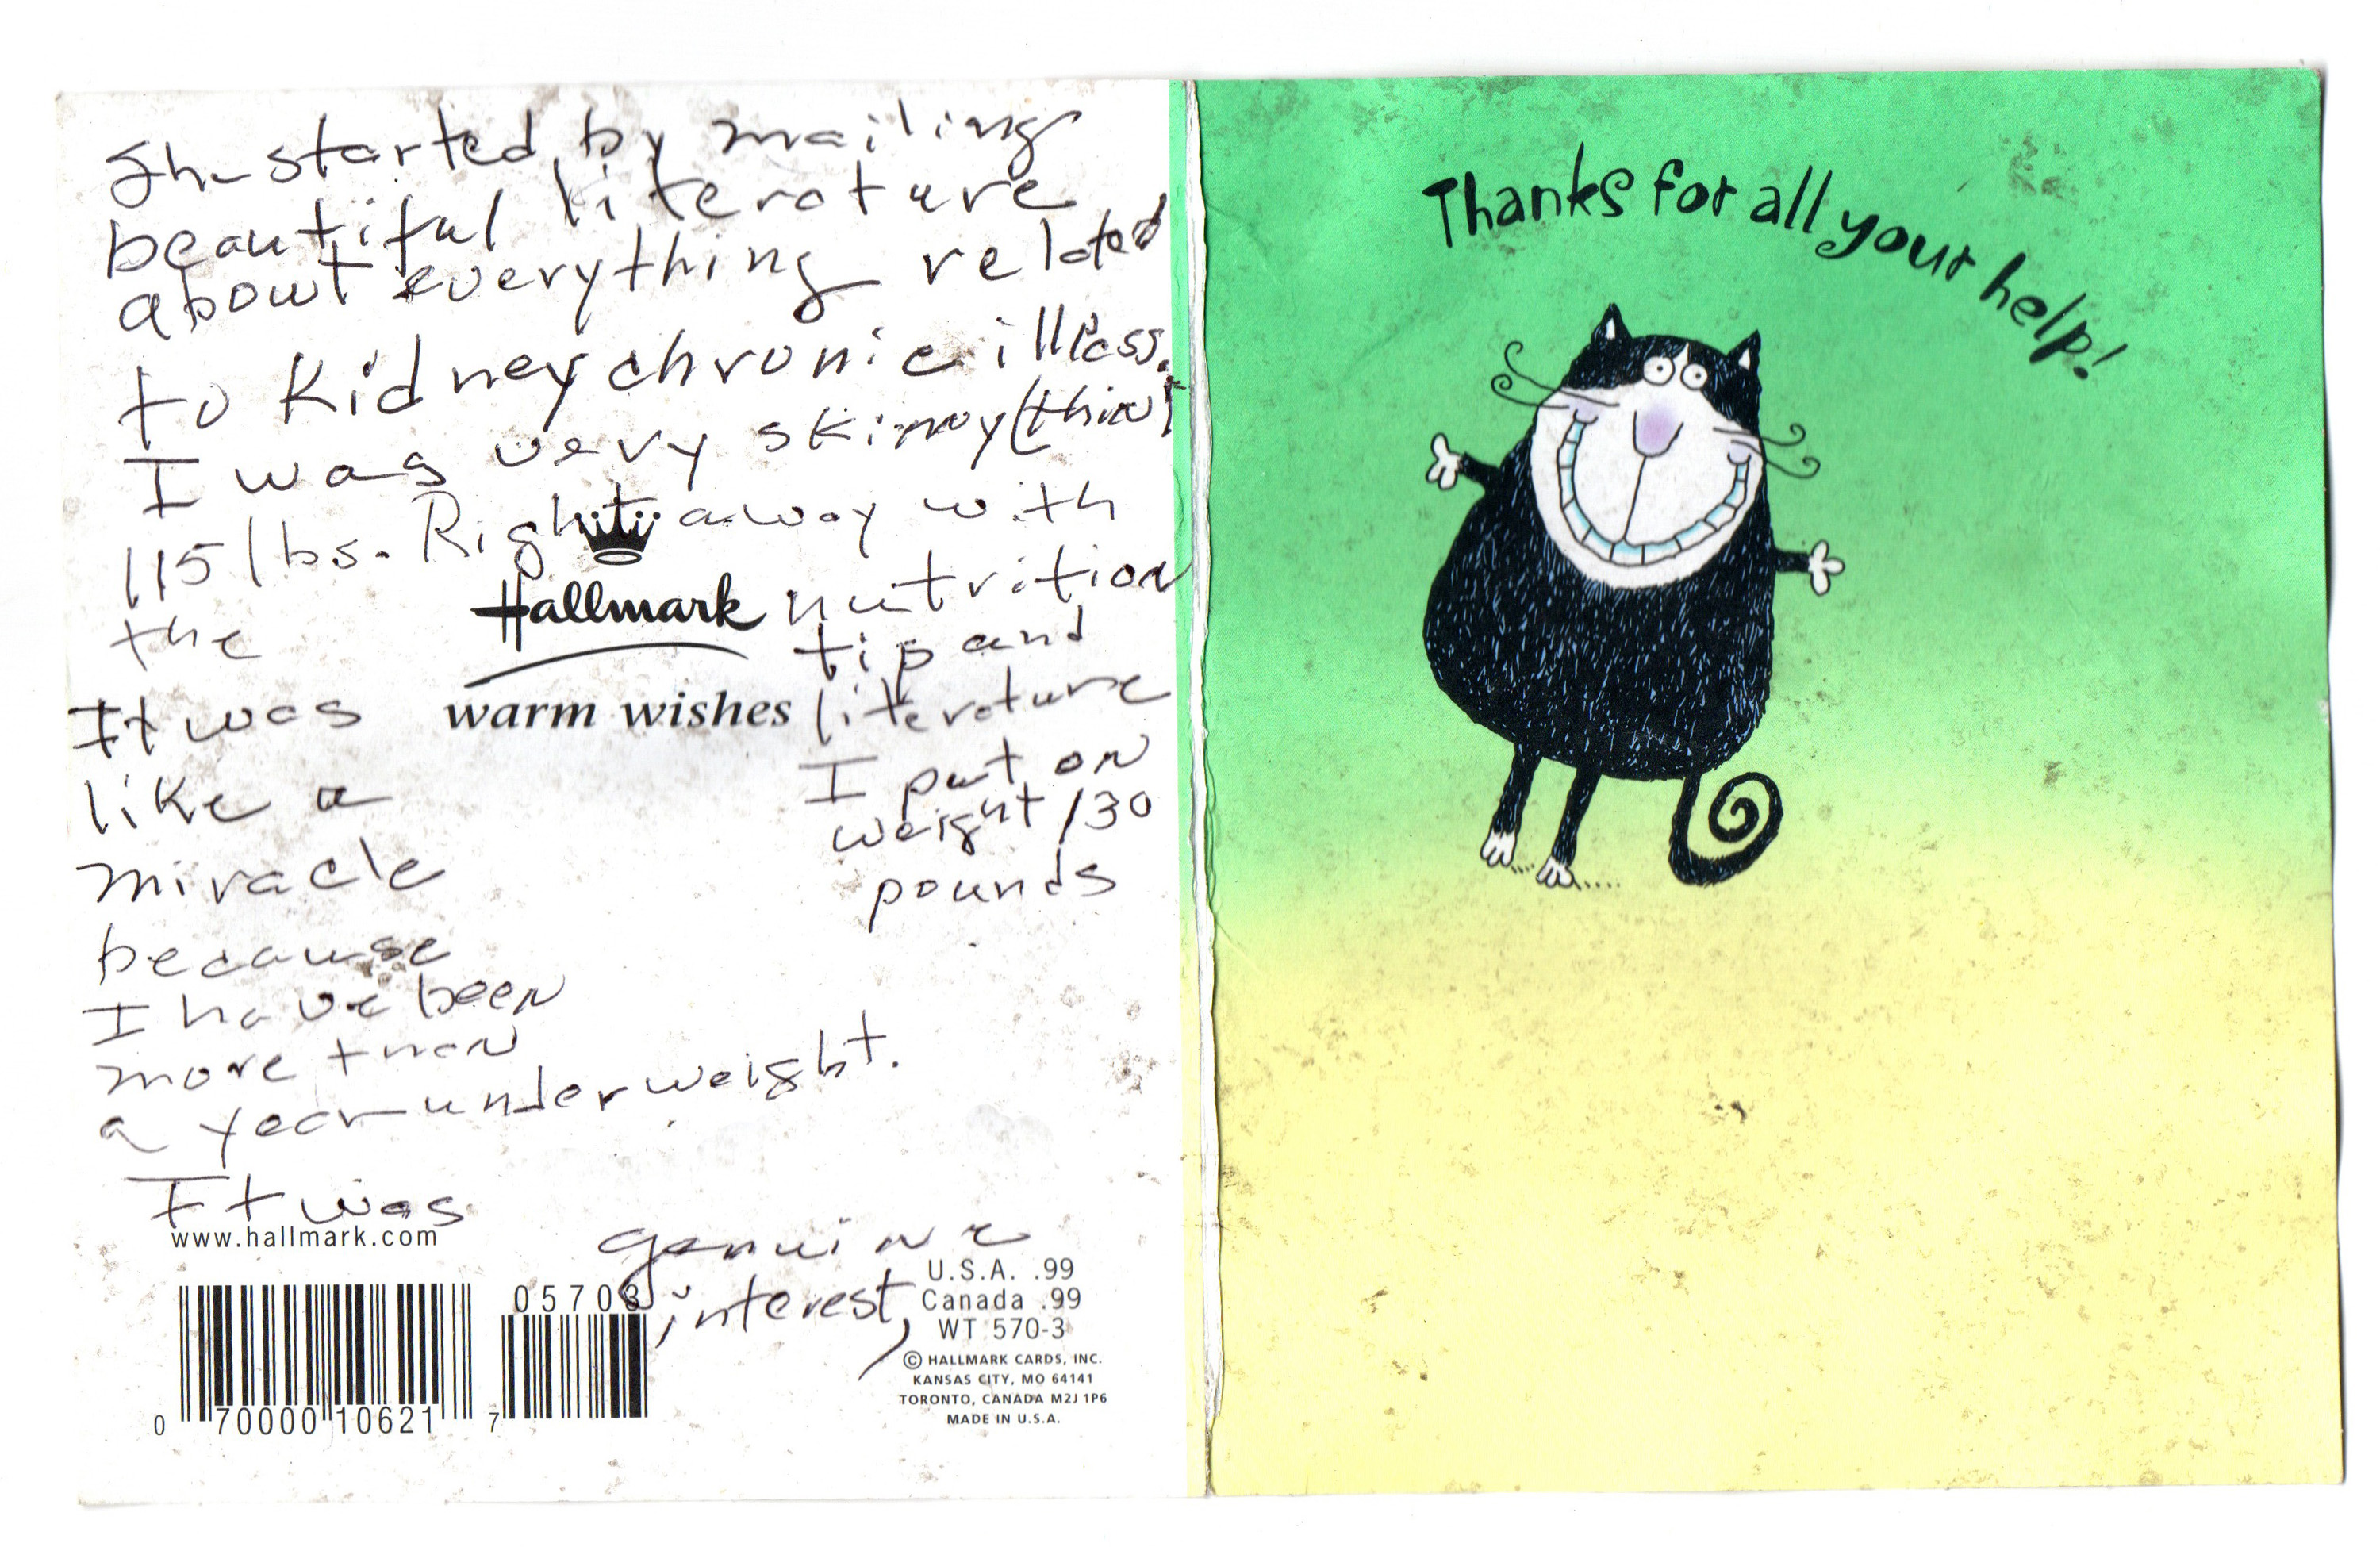 She started by mailing
beautiful literature
about everything related
to Kidney chronic illness.
I was very skinny (thin)
115 lbs. Right away with
the nutrition
tip and
literature
I put on
weight 130
pounds
Hallmark
warm wishes
It was
like a
miracle
because
I have been
more than
a year underweight.
It was
genuine
interest,
www.hallmark.com
0 70000 10621 7
05703
U.S.A. .99
Canada .99
WT 570-3
© HALLMARK CARDS, INC.
KANSAS CITY, MO 64141
TORONTO, CANADA M2J 1P6
MADE IN U.S.A.
Thanks for all your help!